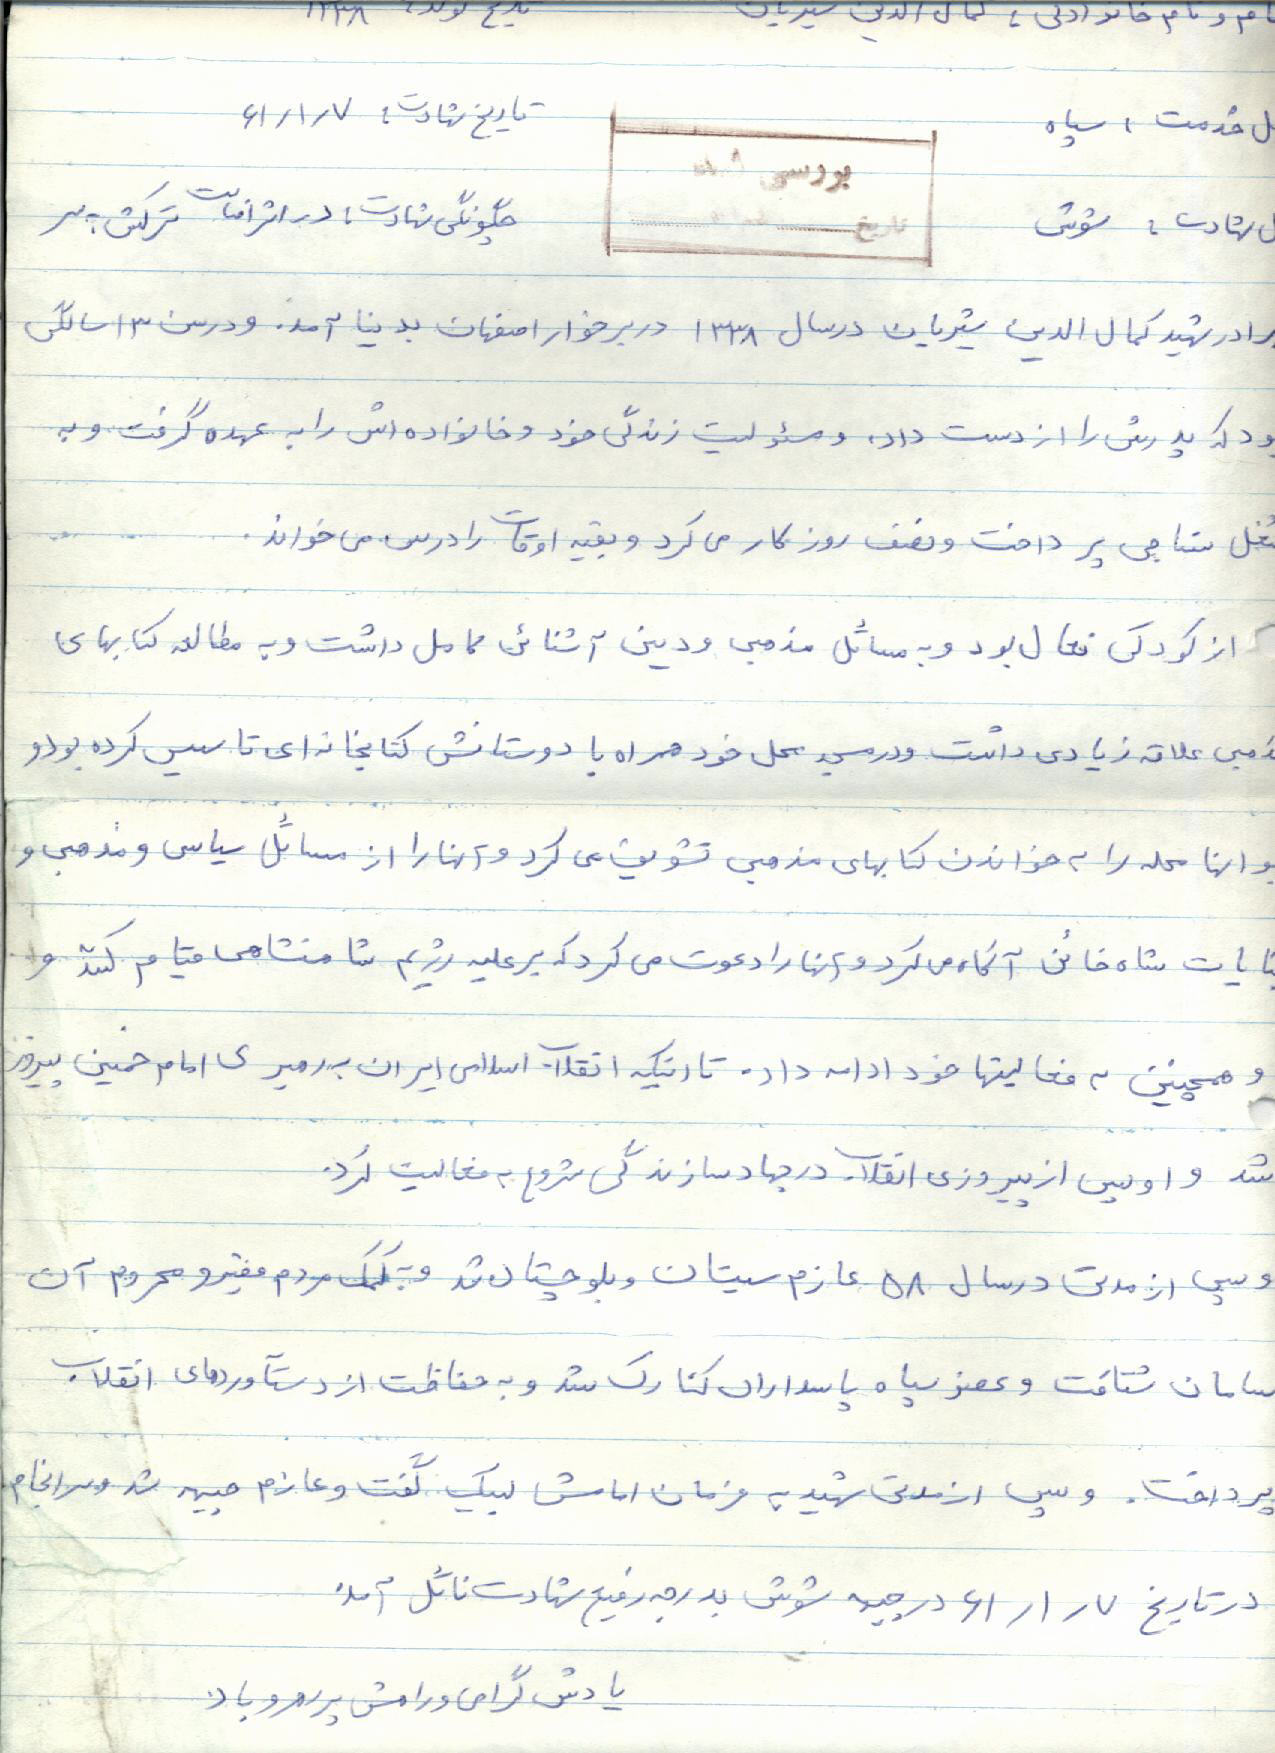 نام و نام خانوادگی : کمال الدین شیریان تاریخ تولد : ۱۳۳۸
ل خدمت : سپاه تاریخ شهادت : ۶۱/۱/۷
بررسی شد
ل شهادت : شوش چگونگی شهادت : در اثر اصابت ترکش به سر
تاریخ
برادر شهید کمال الدین شیریان در سال ۱۳۳۸ در برخوار اصفهان بدینا آمد. و در سن ۱۳ سالگی
بود که پدرش را از دست داد، و مسئولیت زندگی خود و خانواده اش را به عهده گرفت و به
شغل نساجی پرداخت و نصف روز کار می کرد و بقیه اوقات را درس می خواند.
از کودکی فعال بود و به مسائل مذهبی و دینی آشنائی کامل داشت و به مطالعه کتابهای
مذهبی علاقه زیادی داشت و در مسجد محل خود همراه با دوستانش کتابخانه ای تاسیس کرده بود و
نوجوانها محله را به خواندن کتابهای مذهبی تشویق می کرد و آنها را از مسائل سیاسی و مذهبی و
جنایات شاه خائن آگاه می کرد و آنها را دعوت می کرد که بر علیه رژیم شاهنشاهی قیام کنند و
و همچنین به فعالیتها خود ادامه داد. تا اینکه انقلاب اسلامی ایران به رهبری امام خمینی پیروز
شد و او پس از پیروزی انقلاب در جهاد سازندگی شروع به فعالیت کرد.
و پس از مدتی در سال ۵۸ عازم سیستان و بلوچستان شد و به کمک مردم فقیر و محروم آن
سامان شتافت و عضو سپاه پاسداران کنارک شد و به حفاظت از دستآوردهای انقلاب
پرداخت. و پس از مدتی شهید به فرمان امامش لبیک گفت و عازم جبهه شد و سرانجام
در تاریخ ۶۱/۱/۷ در جبهه شوش بدرجه رفیع شهادت نائل آمد.
یادش گرامی و راهش پر رهرو باد.